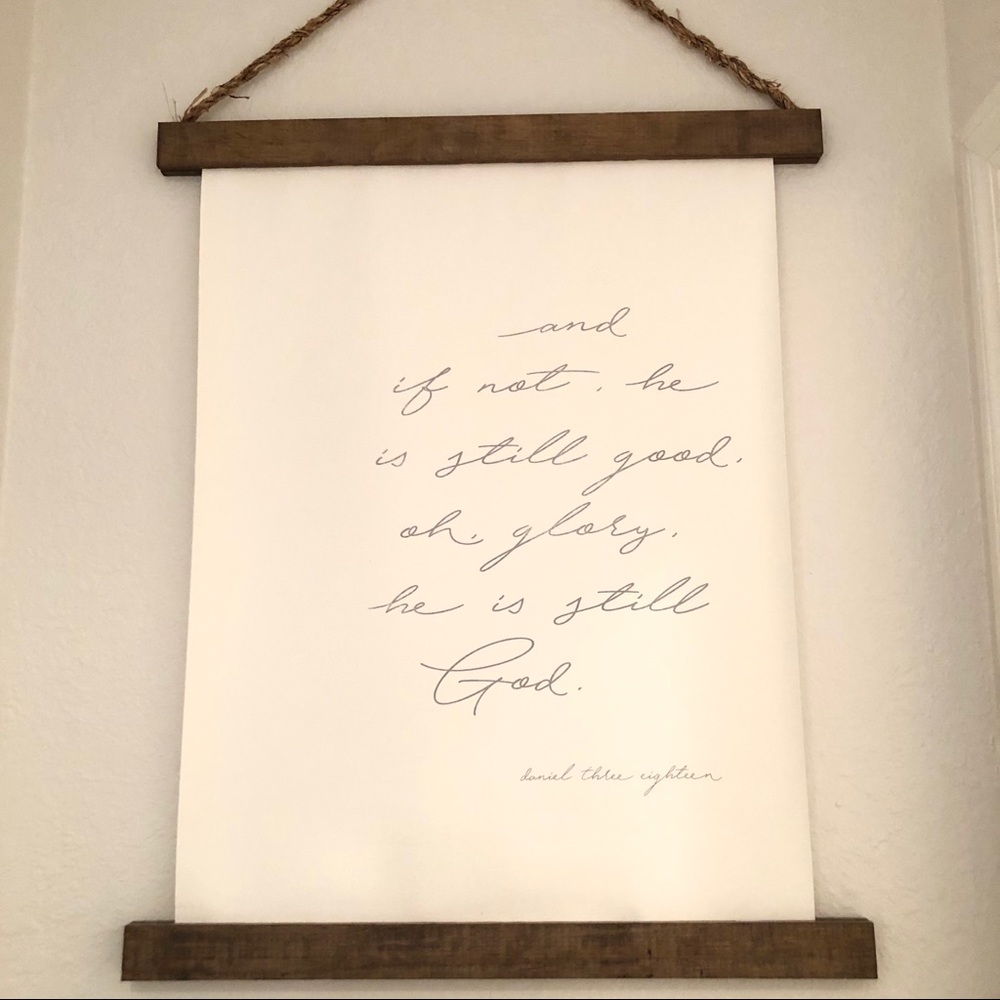 and
if not, he
is still good.
oh, glory,
he is still
God.
daniel three eighteen